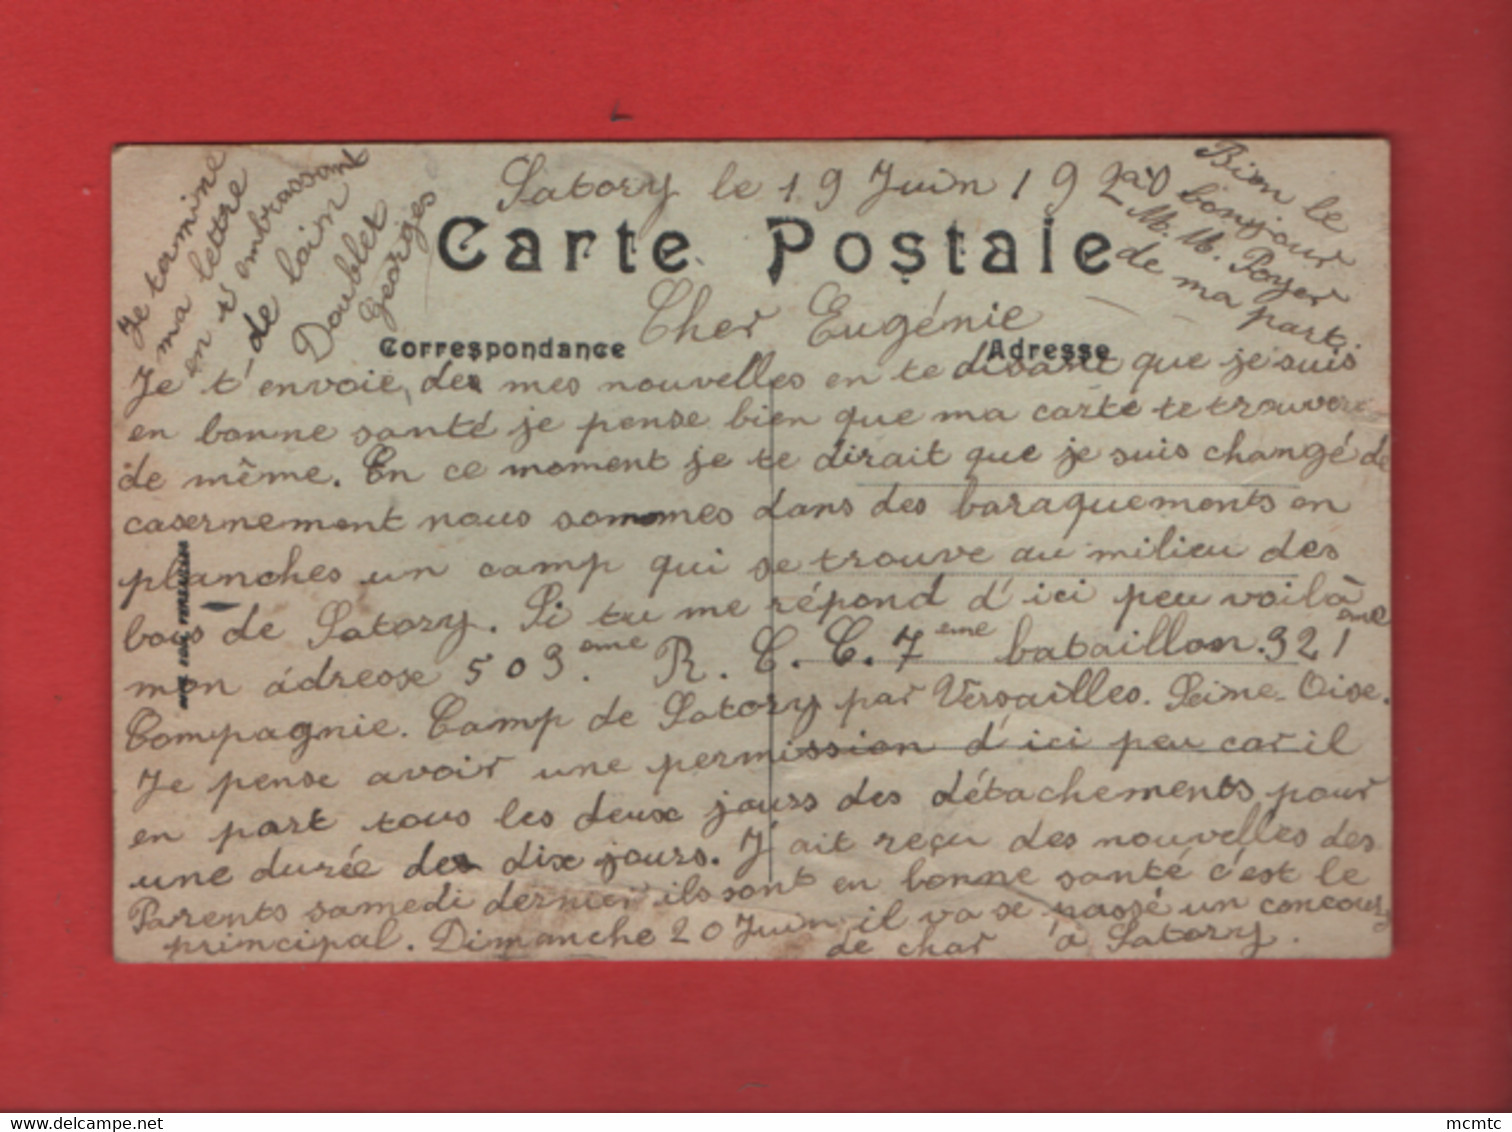 Satory le 19 Juin 1920
Carte Postale
Cher Eugénie
Correspondance
Adresse
Je t'envoie, des mes nouvelles en te disant que je suis
en bonne santé je pense bien que ma carte te trouvera
de même. En ce moment je te dirait que je suis changé de
casernement nous sommes dans des baraquements en
planches un camp qui se trouve au milieu des
bois de Satory. Si tu me répond d'ici peu voilà
mon adresse 503ème. R. C. C. 7ème bataillon. 321ème
Compagnie. Camp de Satory par Versailles. Seine-Oise.
Je pense avoir une permission d'ici peu car il
en part tous les deux jours des détachements pour
une durée des dix jours. J'ait reçu des nouvelles des
Parents samedi dernier ils sont en bonne santé c'est le
principal. Dimanche 20 Juin il va se passé un concours
de char à Satory.
Je termine
ma lettre
en t'embrassant
de loin
Doublet
Georges
Bien le
bonjour
à M. M. Poyer
de ma part.